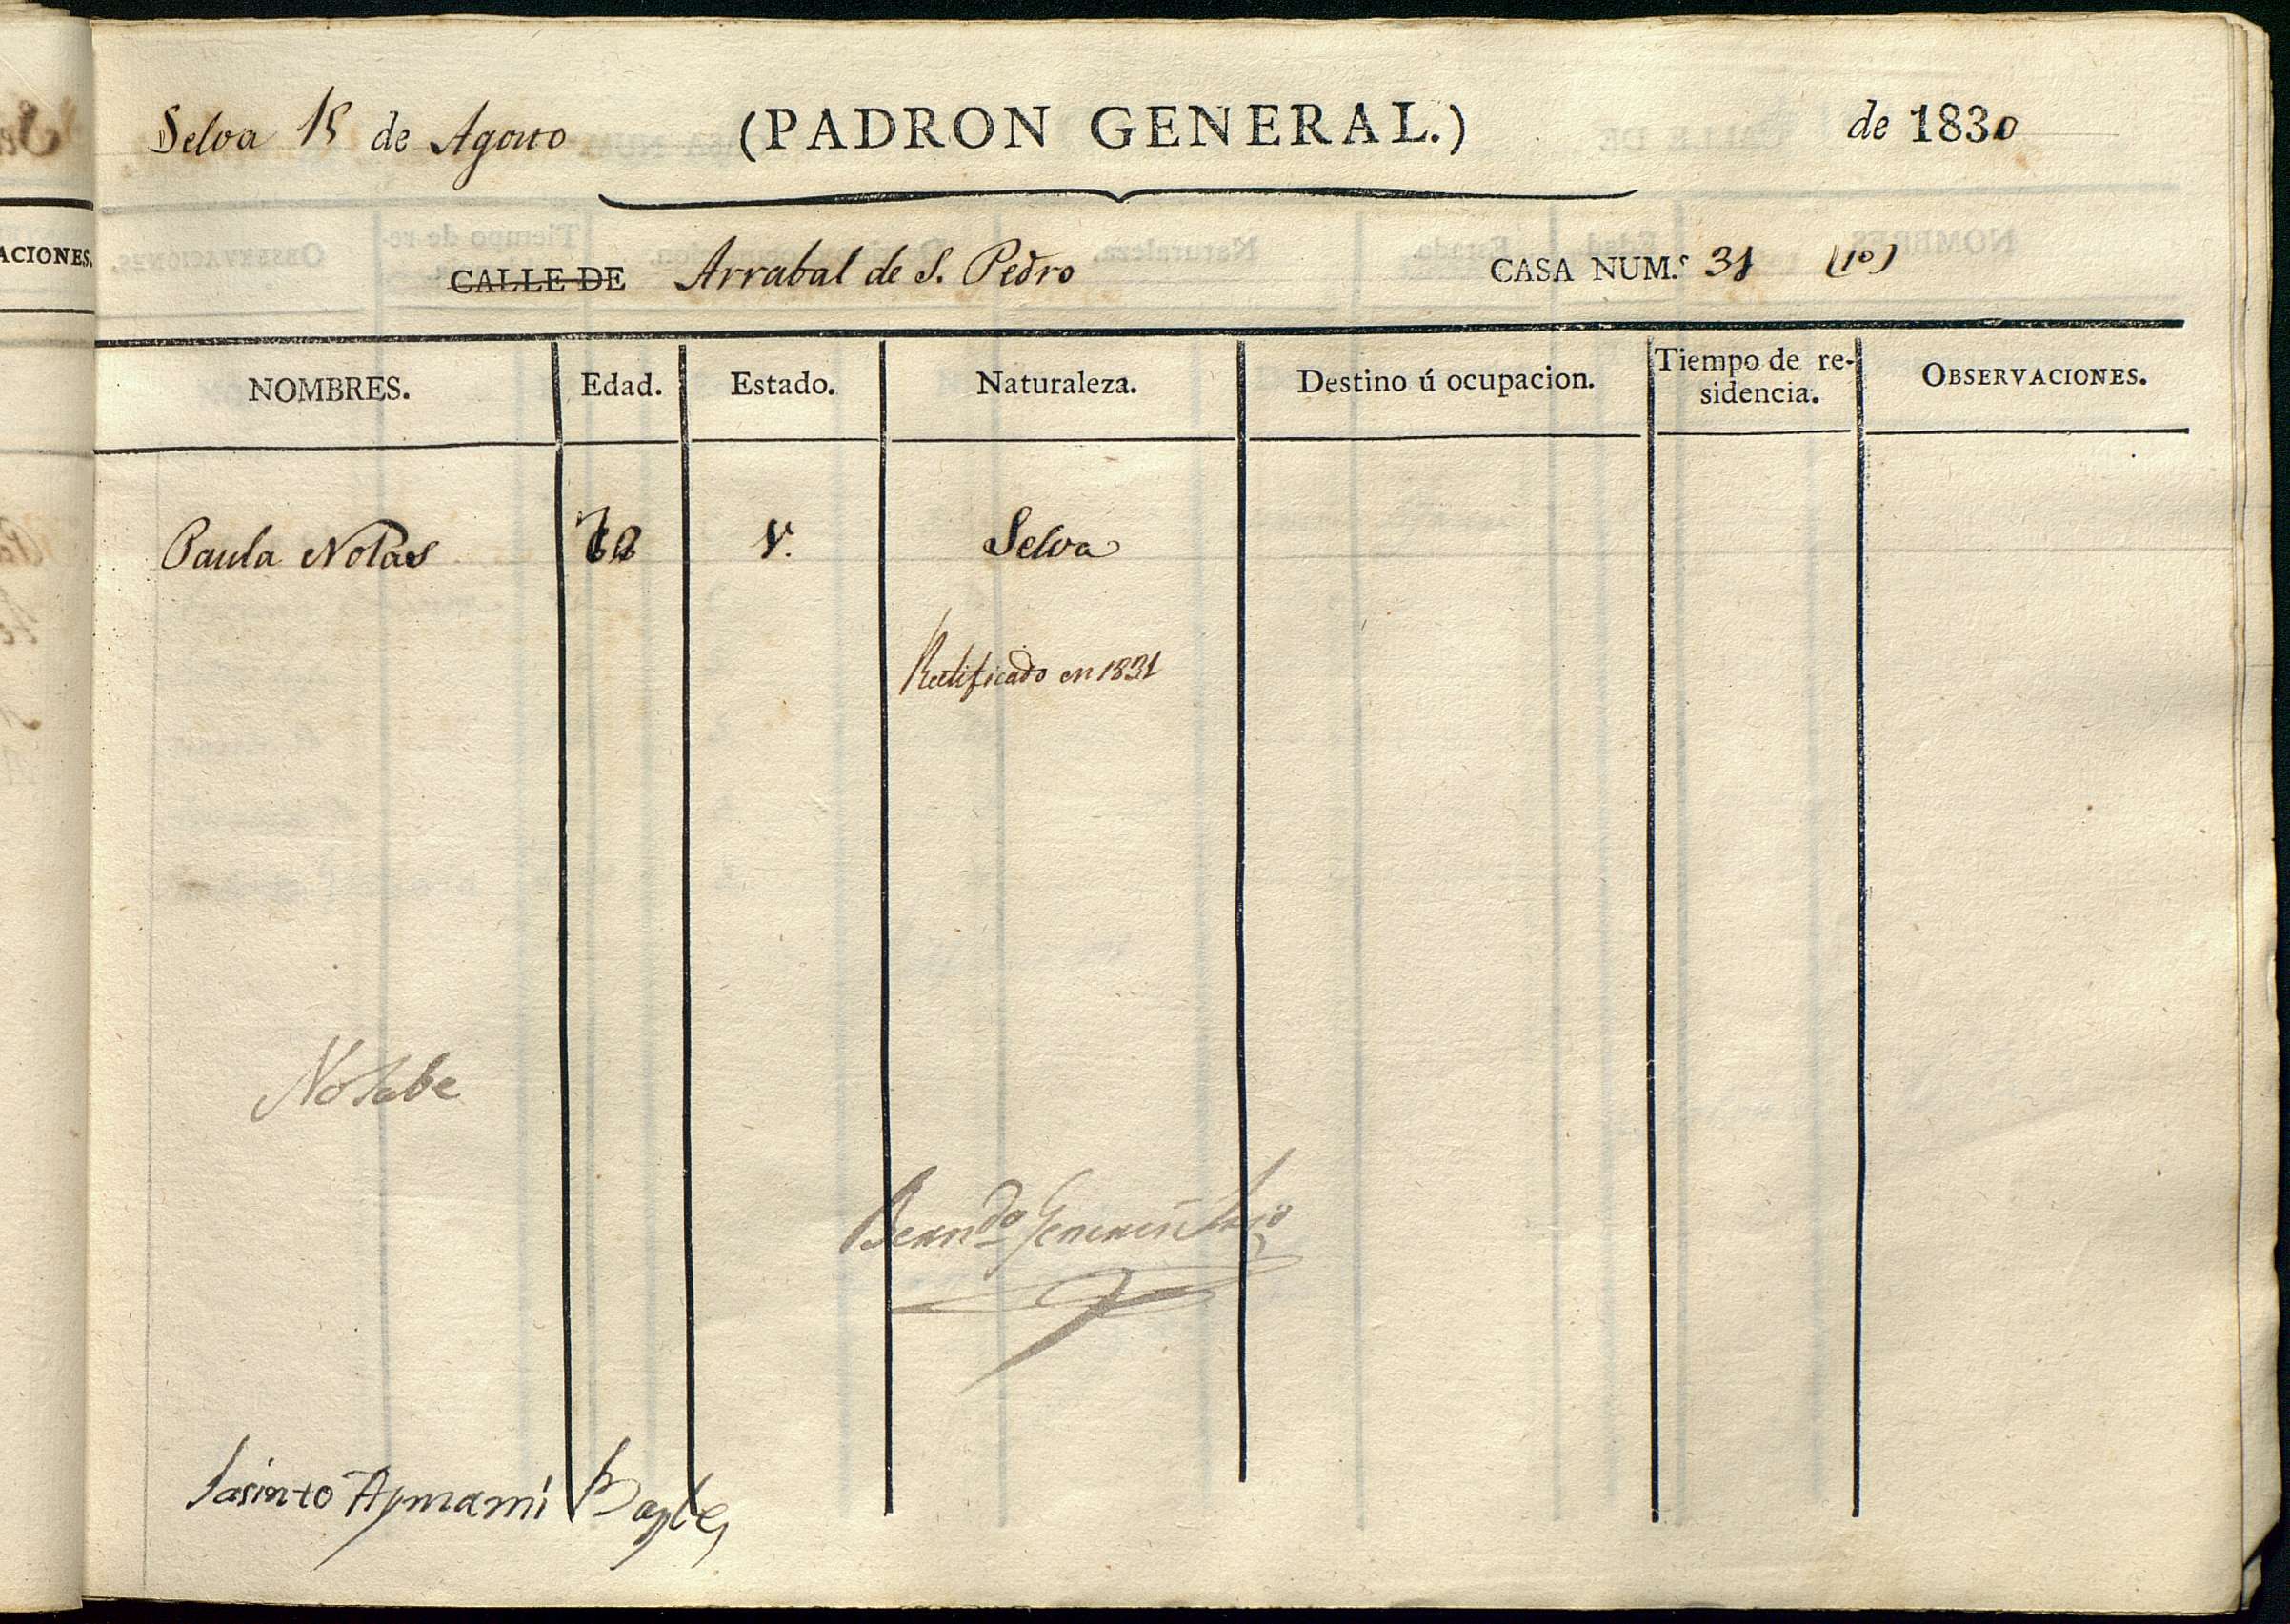 Selva 15 de Agosto (PADRON GENERAL.) de 1830
ACIONES.
CALLE DE Arrabal de S. Pedro CASA NUM.º 31 (10)
NOMBRES. Edad. Estado. Naturaleza. Destino ú ocupacion. Tiempo de re-
sidencia. OBSERVACIONES.
Paula Nolas V. Selva
Retificado en 1831
No sabe
Bern.do
Jasinto Aymamí Bayle